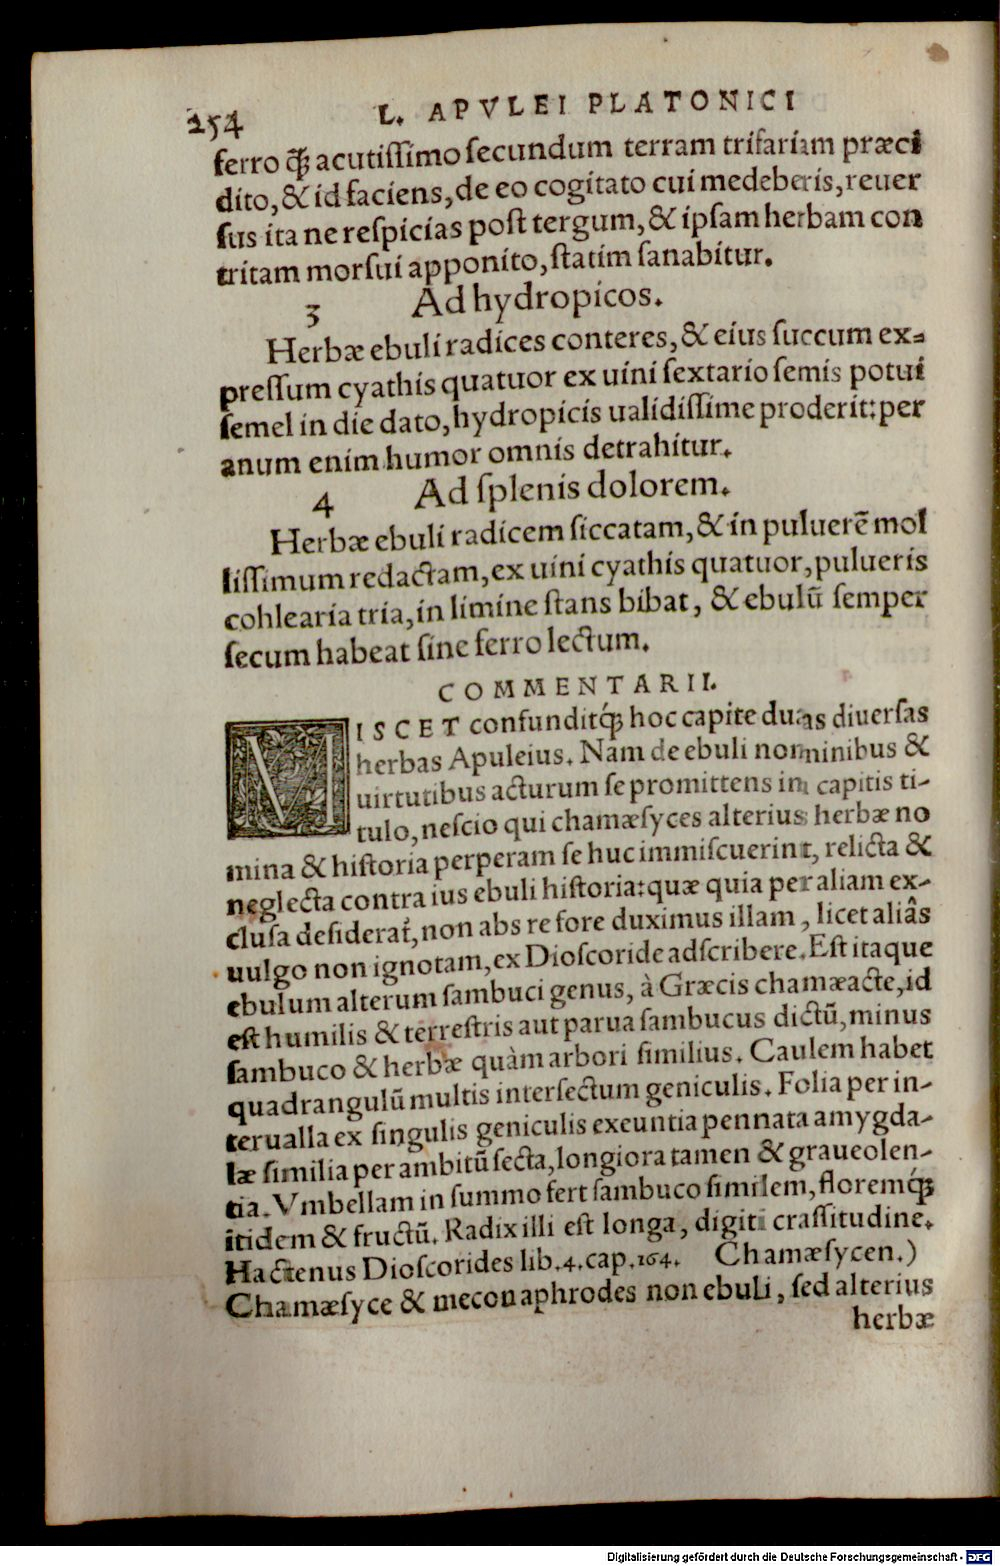 254 L. APVLEI PLATONICI
ferro q̃ꝫ acutiſſimo ſecundum terram trifariam præci
dito, & id faciens, de eo cogitato cui medeberis, reuer
ſus ita ne reſpicias poſt tergum, & ipſam herbam con
tritam morſui apponito, ſtatim ſanabitur.
3 Ad hydropicos.
Herbæ ebuli radices conteres, & eius ſuccum ex⸗
preſſum cyathis quatuor ex uini ſextario ſemis potui
ſemel in die dato, hydropicis ualidiſſime proderit: per
anum enim humor omnis detrahitur.
4 Ad ſplenis dolorem.
Herbæ ebuli radicem ſiccatam, & in puluerẽ mol
liſſimum redactam, ex uini cyathis quatuor, pulueris
cohlearia tria, in limine ſtans bibat, & ebulũ ſemper
ſecum habeat ſine ferro lectum.
COMMENTARII.
MISCET confunditq́ꝫ hoc capite duas diuerſas
herbas Apuleius. Nam de ebuli nominibus &
uirtutibus acturum ſe promittens in capitis ti-
tulo, neſcio qui chamæſyces alterius herbæ no
mina & hiſtoria perperam ſe huc immiſcuerint, relicta &
neglecta contra ius ebuli hiſtoria: quæ quia per aliam ex-
cluſa deſiderat́, non abs re fore duximus illam, licet aliâs
uulgo non ignotam, ex Dioſcoride adſcribere. Eſt itaque
ebulum alterum ſambuci genus, à Græcis chamæacte, id
eſt humilis & terreſtris aut parua ſambucus dictũ, minus
ſambuco & herbæ quàm arbori ſimilius. Caulem habet
quadrangulũ multis interſectum geniculis. Folia per in-
terualla ex ſingulis geniculis exeuntia pennata amygda-
læ ſimilia per ambitũ ſecta, longiora tamen & graueolen-
tia. Vmbellam in ſummo fert ſambuco ſimilem, floremq́ꝫ
itidem & fructũ. Radix illi eſt longa, digiti craſſitudine.
Hactenus Dioſcorides lib. 4. cap. 164. Chamæſycen.)
Chamæſyce & meconaphrodes non ebuli, ſed alterius
herbæ
Digitalisierung gefördert durch die Deutsche Forschungsgemeinschaft - DFG